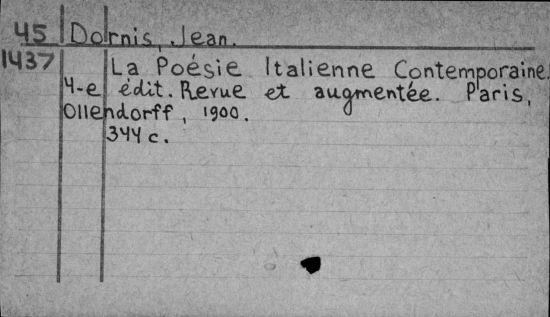 45 Dornis, Jean.
1437 La Poésie Italienne Contemporaine.
4-e édit. Revue et augmentée. Paris,
Ollendorff, 1900.
344 c.